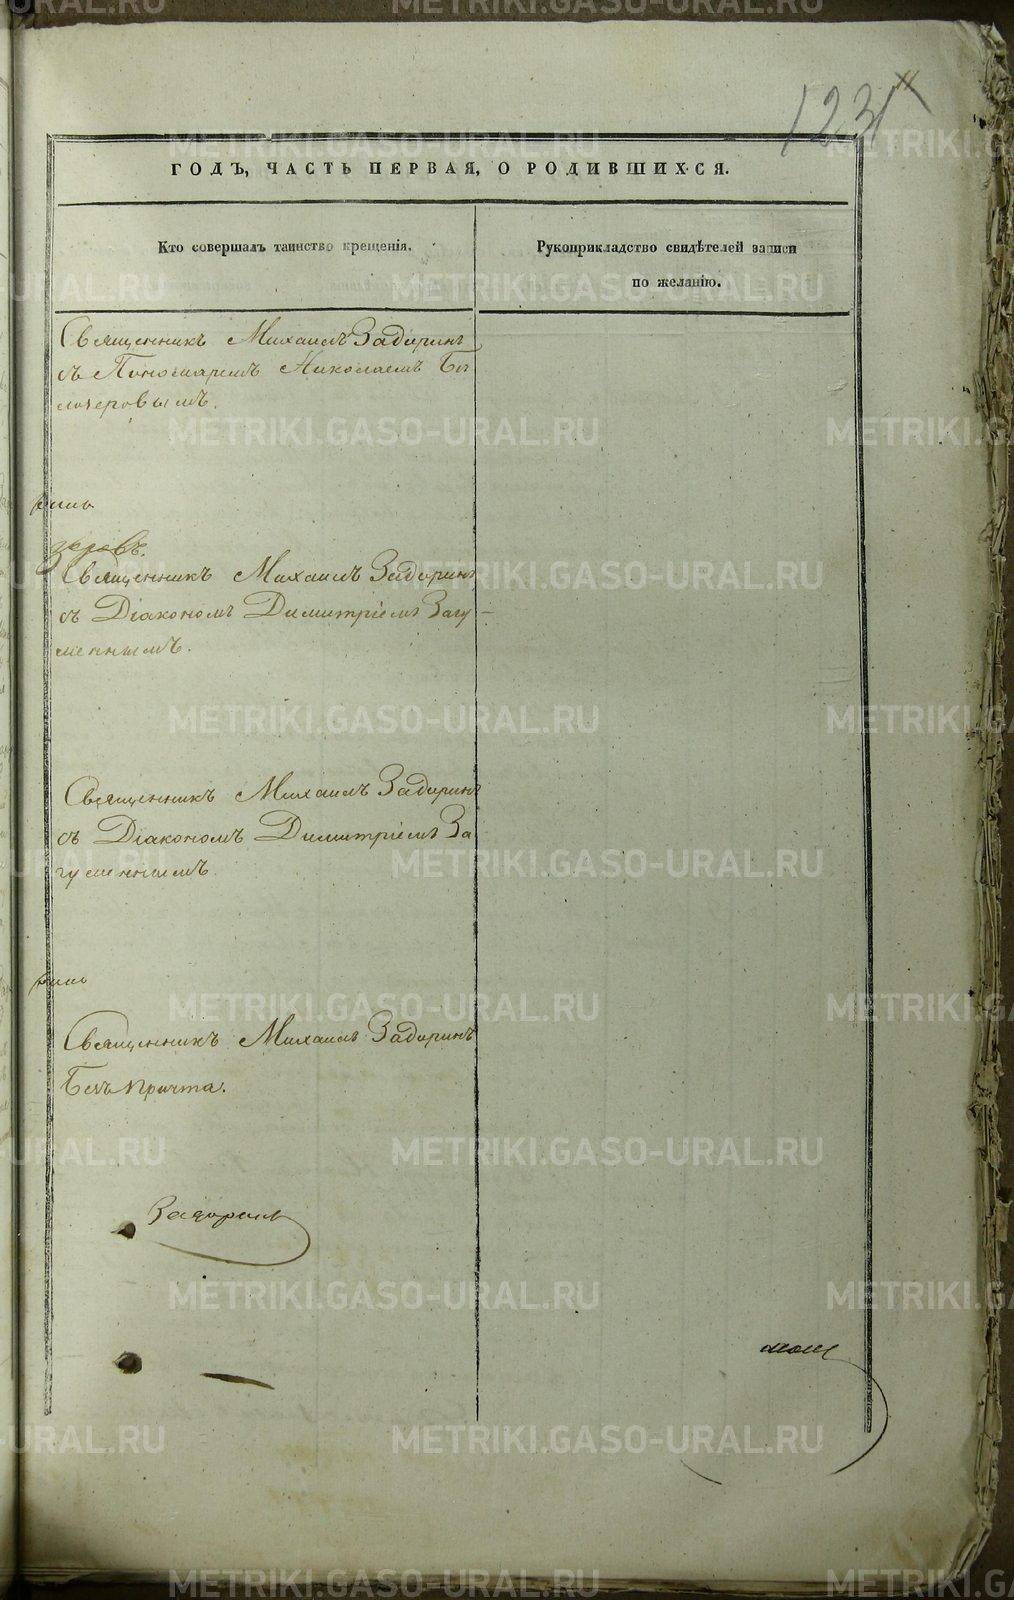 1231
ГОДЪ, ЧАСТЬ ПЕРВАЯ, О РОДИВШИХСЯ.
Кто совершалъ таинство крещенія.
Рукоприкладство свидѣтелей записи
по желанію.
Священникъ Михаилъ Задоринъ
съ Пономаремъ Николаемъ Бѣ
лозеровымъ.
Священникъ Михаилъ Задоринъ
съ Діакономъ Димитріемъ Загу-
меннымъ.
Священникъ Михаилъ Задоринъ
съ Діакономъ Димитріемъ За
гуменнымъ.
Священникъ Михаилъ Задоринъ
Безъ причта.
Задоринъ
METRIKI.GASO-URAL.RU